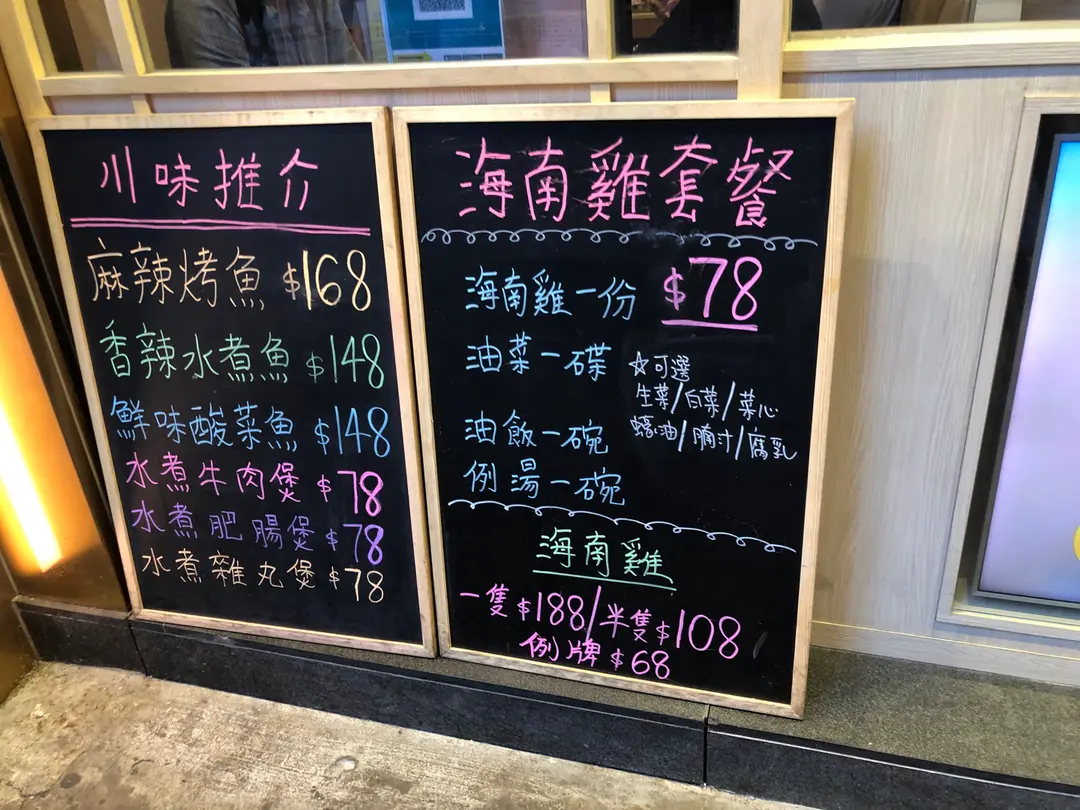 川味推介
麻辣烤魚 $168
香辣水煮魚 $148
鮮味酸菜魚 $148
水煮牛肉煲 $78
水煮肥腸煲 $78
水煮雜丸煲 $78
海南雞套餐
海南雞一份 $78
油菜一碟
☆可選
生菜/白菜/菜心
蠔油/腩汁/腐乳
油飯一碗
例湯一碗
海南雞
一隻$188/半隻$108
例牌$68